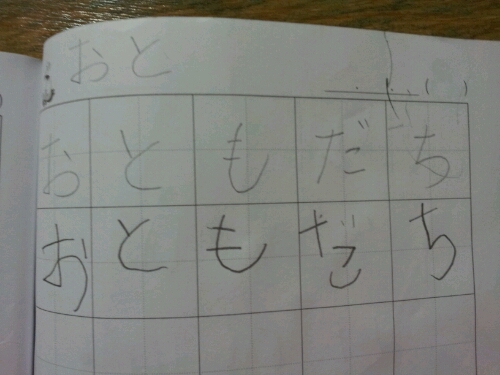 おと
おともだち
おともだち